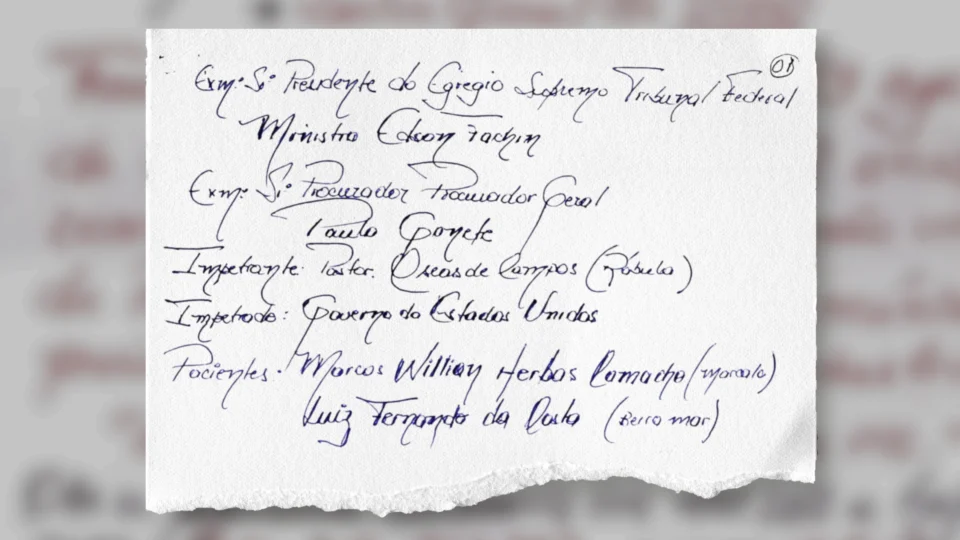 01
Exmº Srº Presidente do Egregio Supremo Tribunal Federal
Ministro Edson Fachin
Exmº Srº Procurador Procurador Geral
Paulo Gonete
Impetrante: Pastor. Oseas de Campos (Rábula)
Impetrado: Governo do Estados Unidos
Pacientes: Marcos Willian Herbas Camacho (Marcola)
Luiz Fernando da Costa (Beira mar)